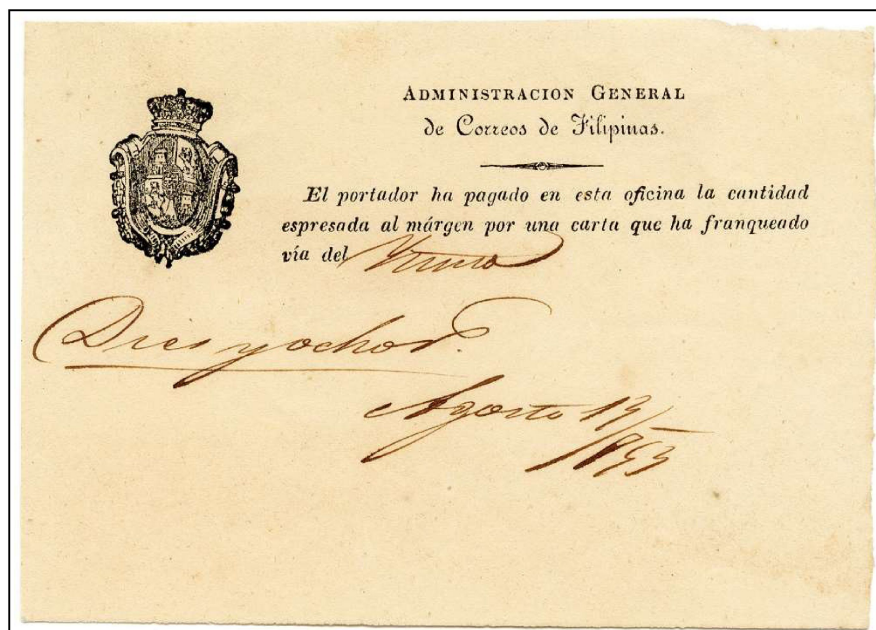 ADMINISTRACION GENERAL
de Correos de Filipinas.
El portador ha pagado en esta oficina la cantidad
espresada al márgen por una carta que ha franqueado
vía del
Dies y ocho
Agosto 13/853